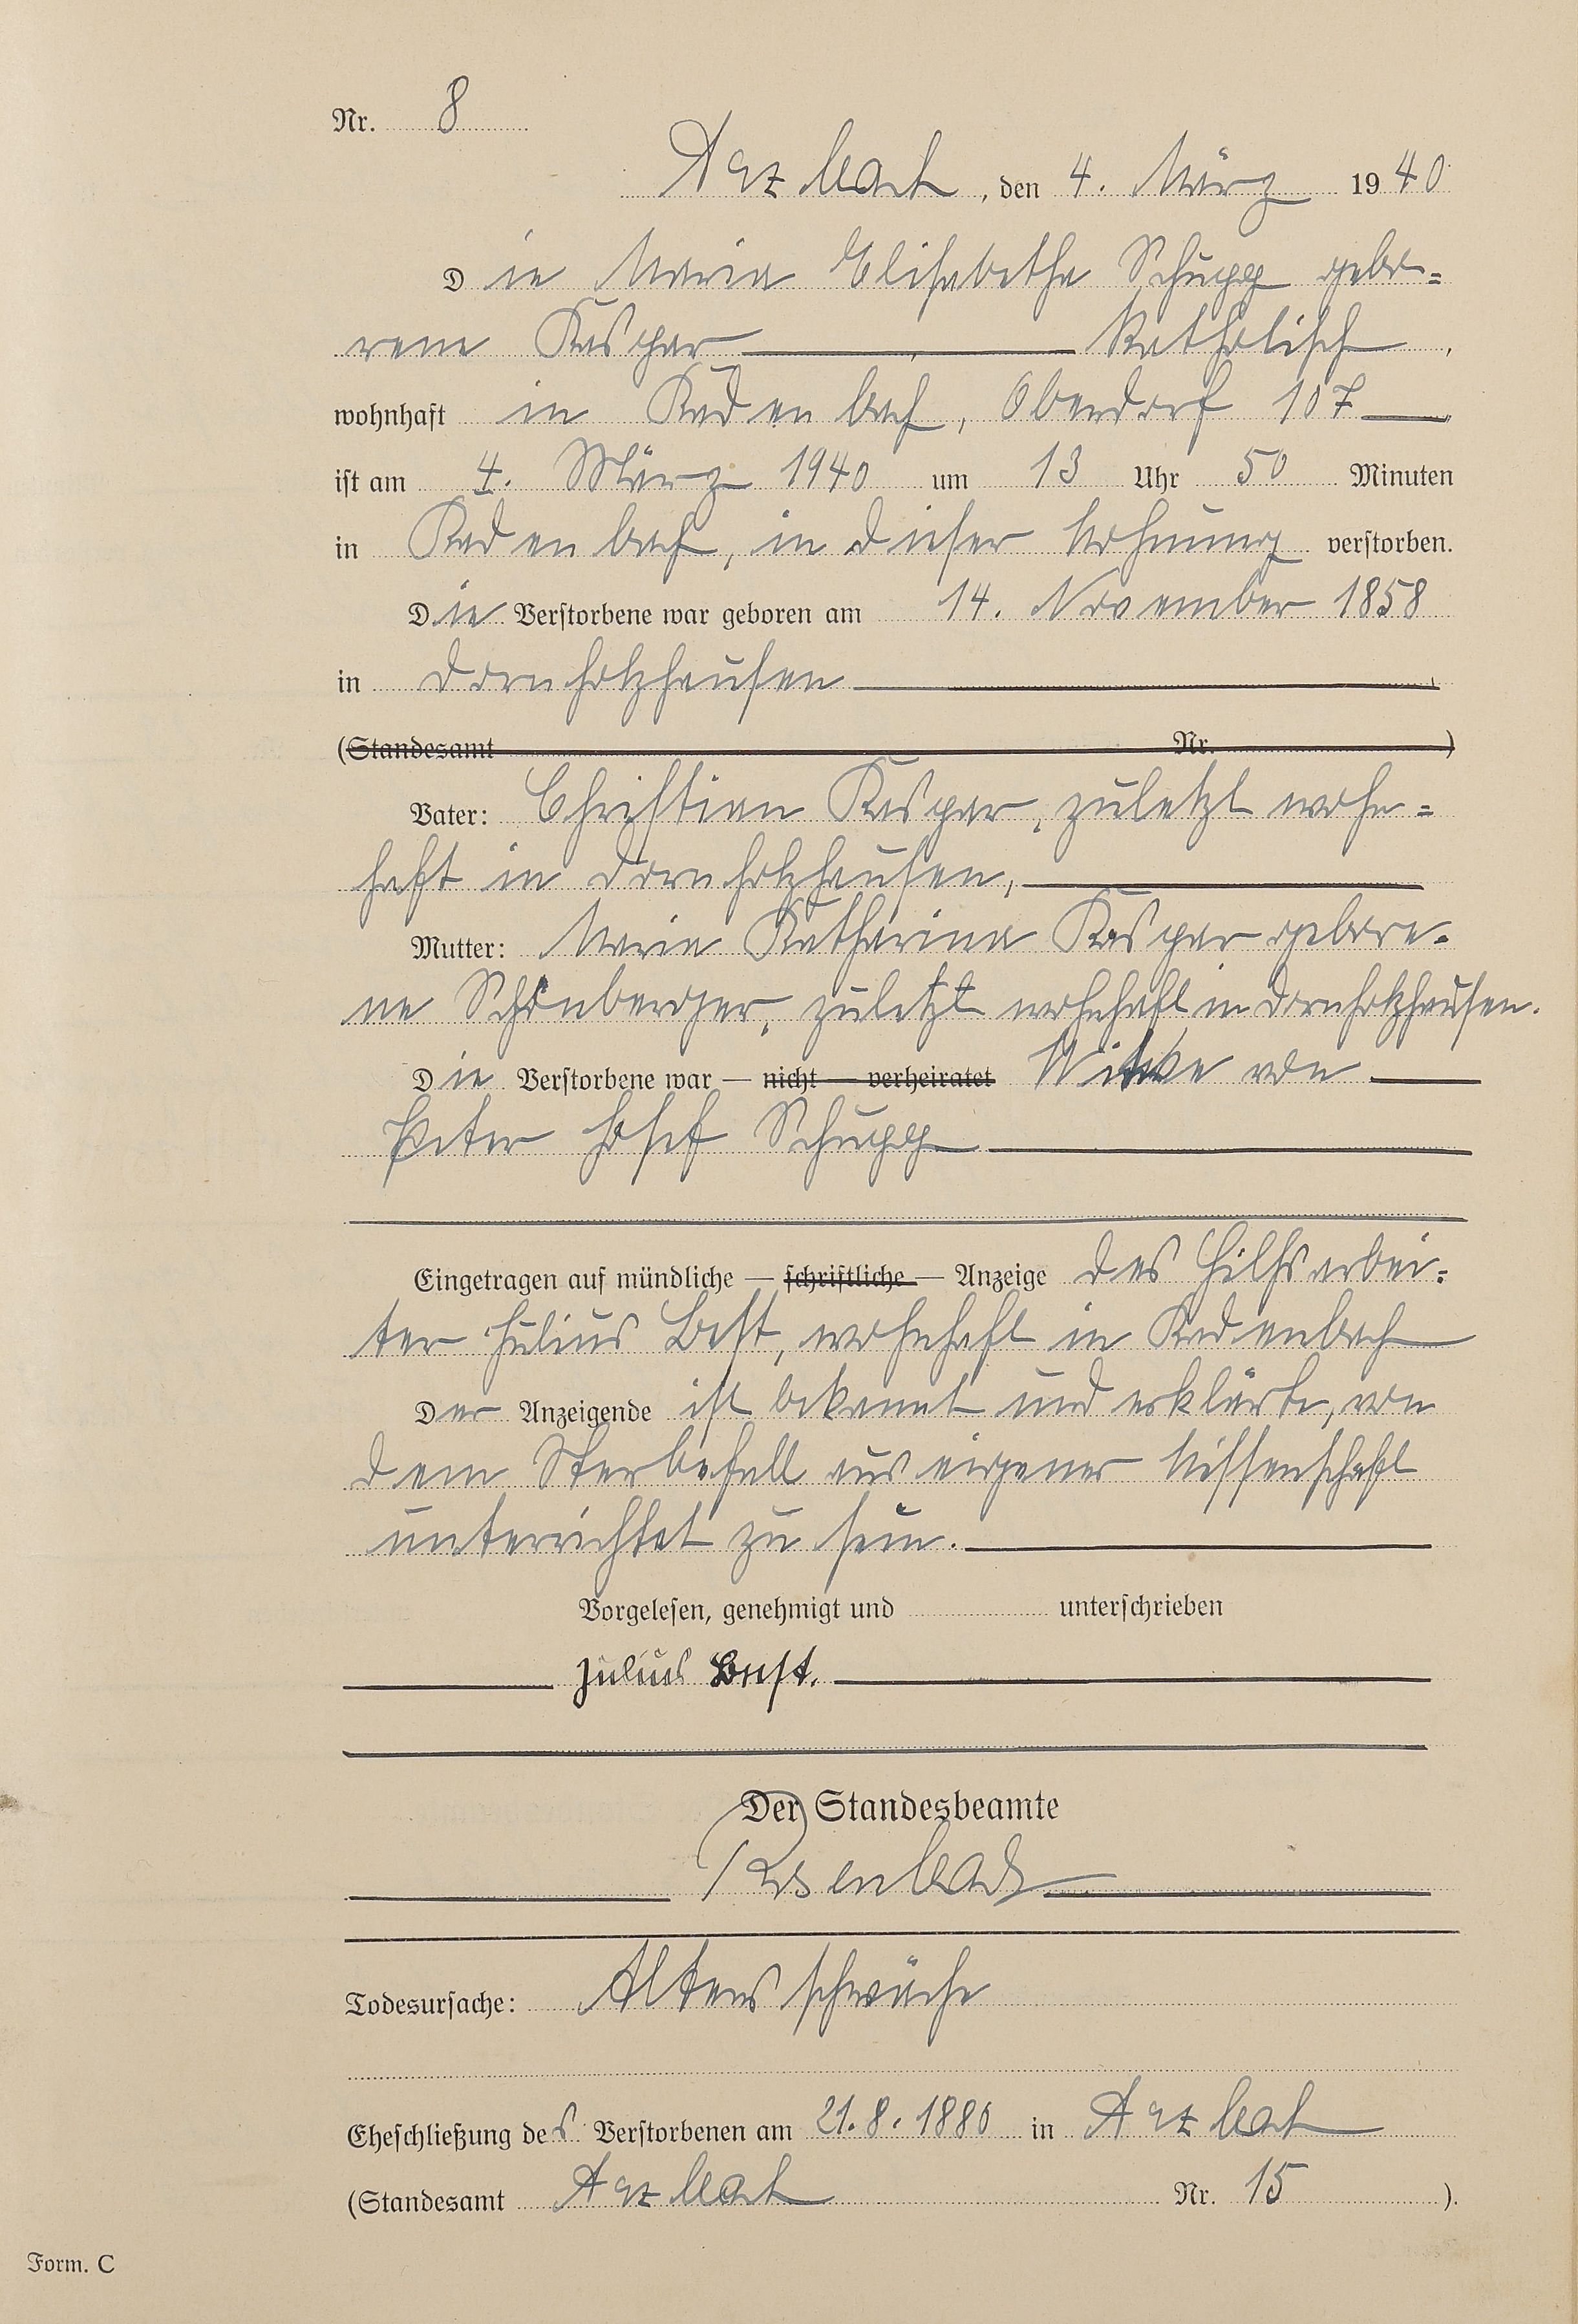 Nr. 8
Arzbach, den 4. März 1940
Die Maria Elisabetha Schupp gebo=
rene Kaspar katholisch,
wohnhaft in Kadenbach, Oberdorf 107
ist am 4. März 1940 um 13 Uhr 50 Minuten
in Kadenbach, in dieser Wohnung verstorben.
Die Verstorbene war geboren am 14. November 1858
in Dornholzhausen
(Standesamt Nr. )
Vater: Christian Kaspar, zuletzt wohn=
haft in Dornholzhausen,
Mutter: Maria Katharina Kaspar gebore-
ne Schönberger, zuletzt wohnhaft in Dornholzhausen.
Die Verstorbene war — nicht — verheiratet Witwe von
Peter Josef Schupp
Eingetragen auf mündliche — schriftliche — Anzeige des Hilfsarbei=
ter Julius Best, wohnhaft in Kadenbach
Der Anzeigende ist bekannt und erklärte, von
dem Sterbefall aus eigener Wissenschaft
unterrichtet zu sein.
Vorgelesen, genehmigt und unterschrieben
Julius Best.
Der Standesbeamte
Todesursache: Altersschwäche
Eheschließung des Verstorbenen am 21.8.1880 in Arzbach
(Standesamt Arzbach Nr. 15 ).
Form. C